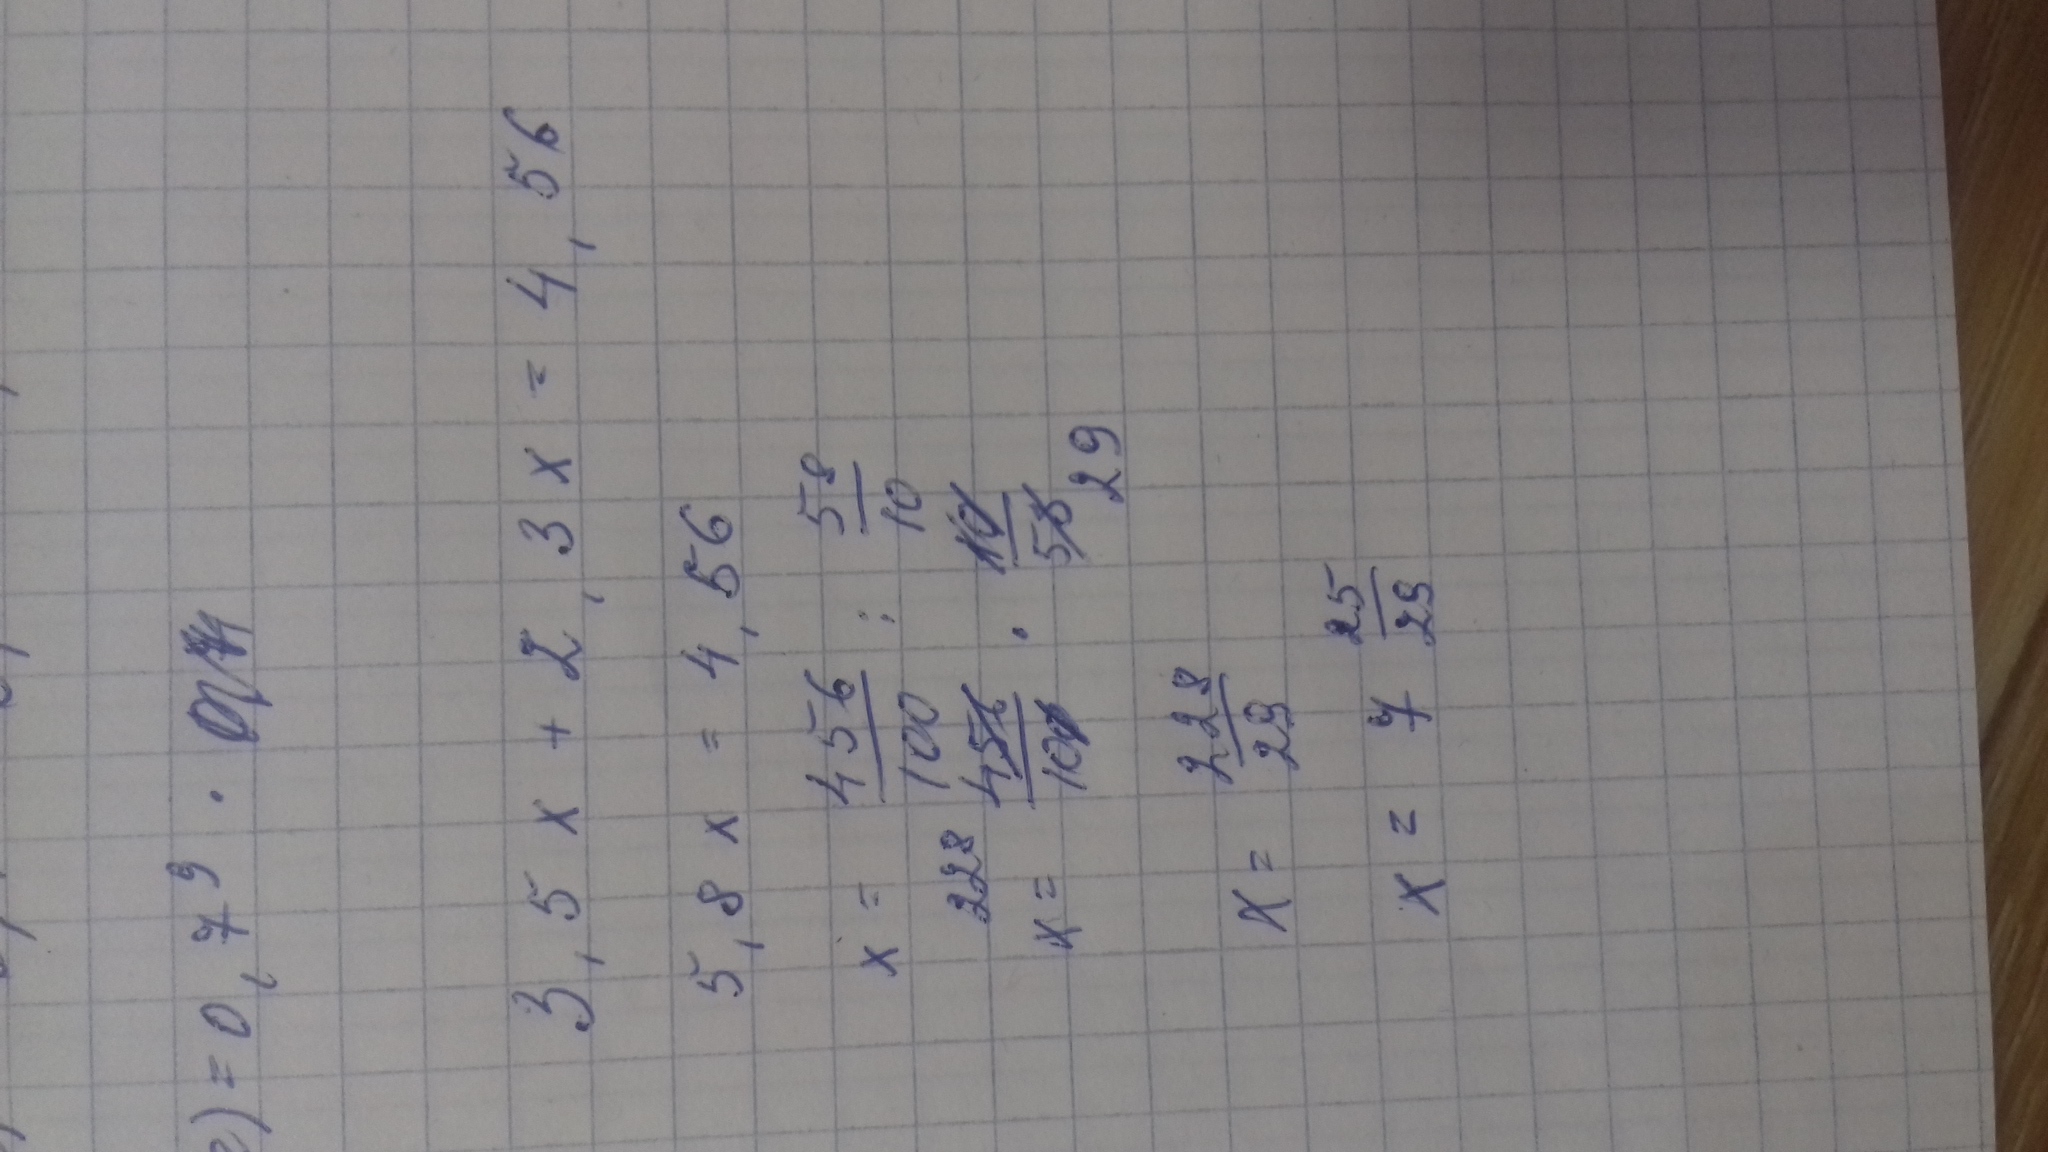 ) = 0,79 ·
3,5x + 2,3x = 4,56
5,8x = 4,56
x = 456/100 : 58/10
228
x = 456/100 · 10/58
29
x = 228/29
x = 7 25/29